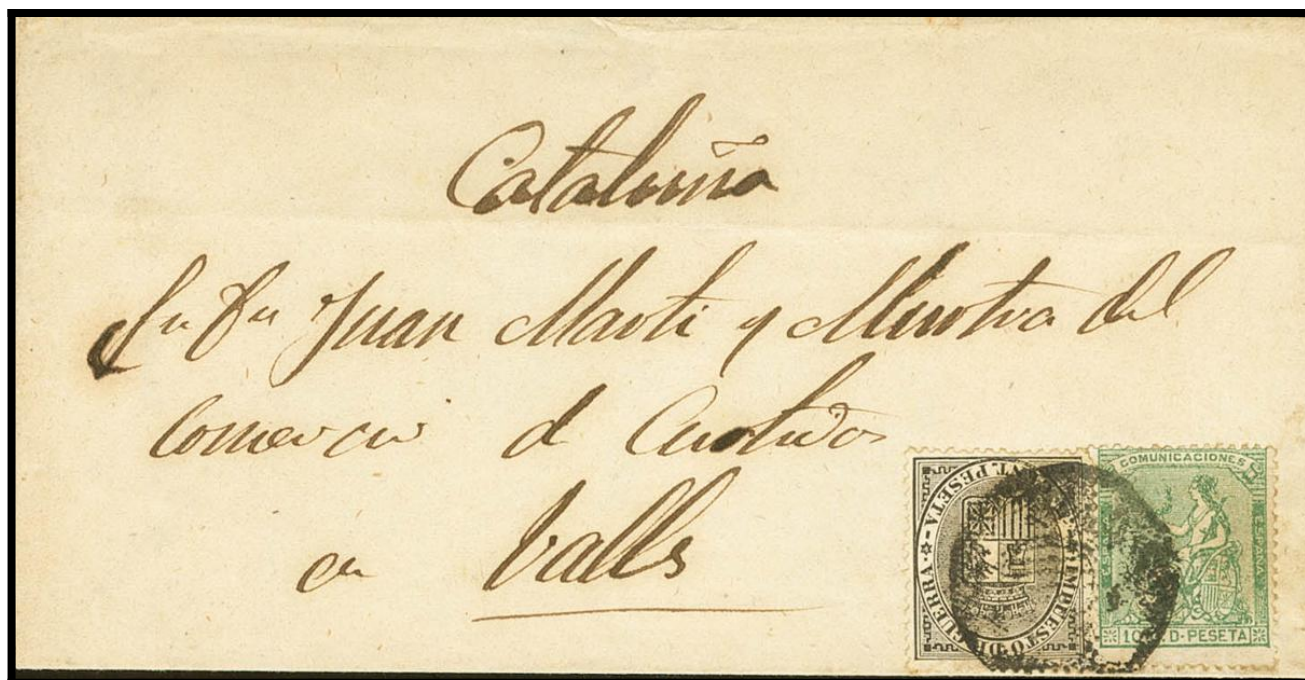 Cataluña
Sr Dn Juan Marti y Mestre del
Comercio de Curtidos
en Valls
CVT. PESETA
IMPUESTO DE GUERRA
COMUNICACIONES
ESPAÑA
10 C. D-PESETA